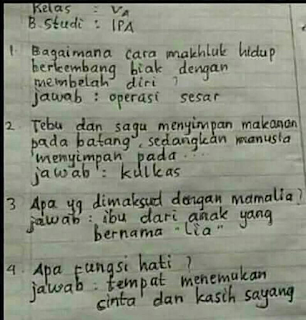 Kelas : VA
B. Studi : IPA
1. Bagaimana cara makhluk hidup
berkembang biak dengan
membelah diri ?
jawab : operasi sesar
2. Tebu dan sagu menyimpan makanan
pada batang, sedangkan manusia
menyimpan pada ...
jawab : kulkas
3 Apa yg dimaksud dengan mamalia?
jawab : ibu dari anak yang
bernama "Lia"
4. Apa fungsi hati ?
jawab : tempat menemukan
cinta dan kasih sayang